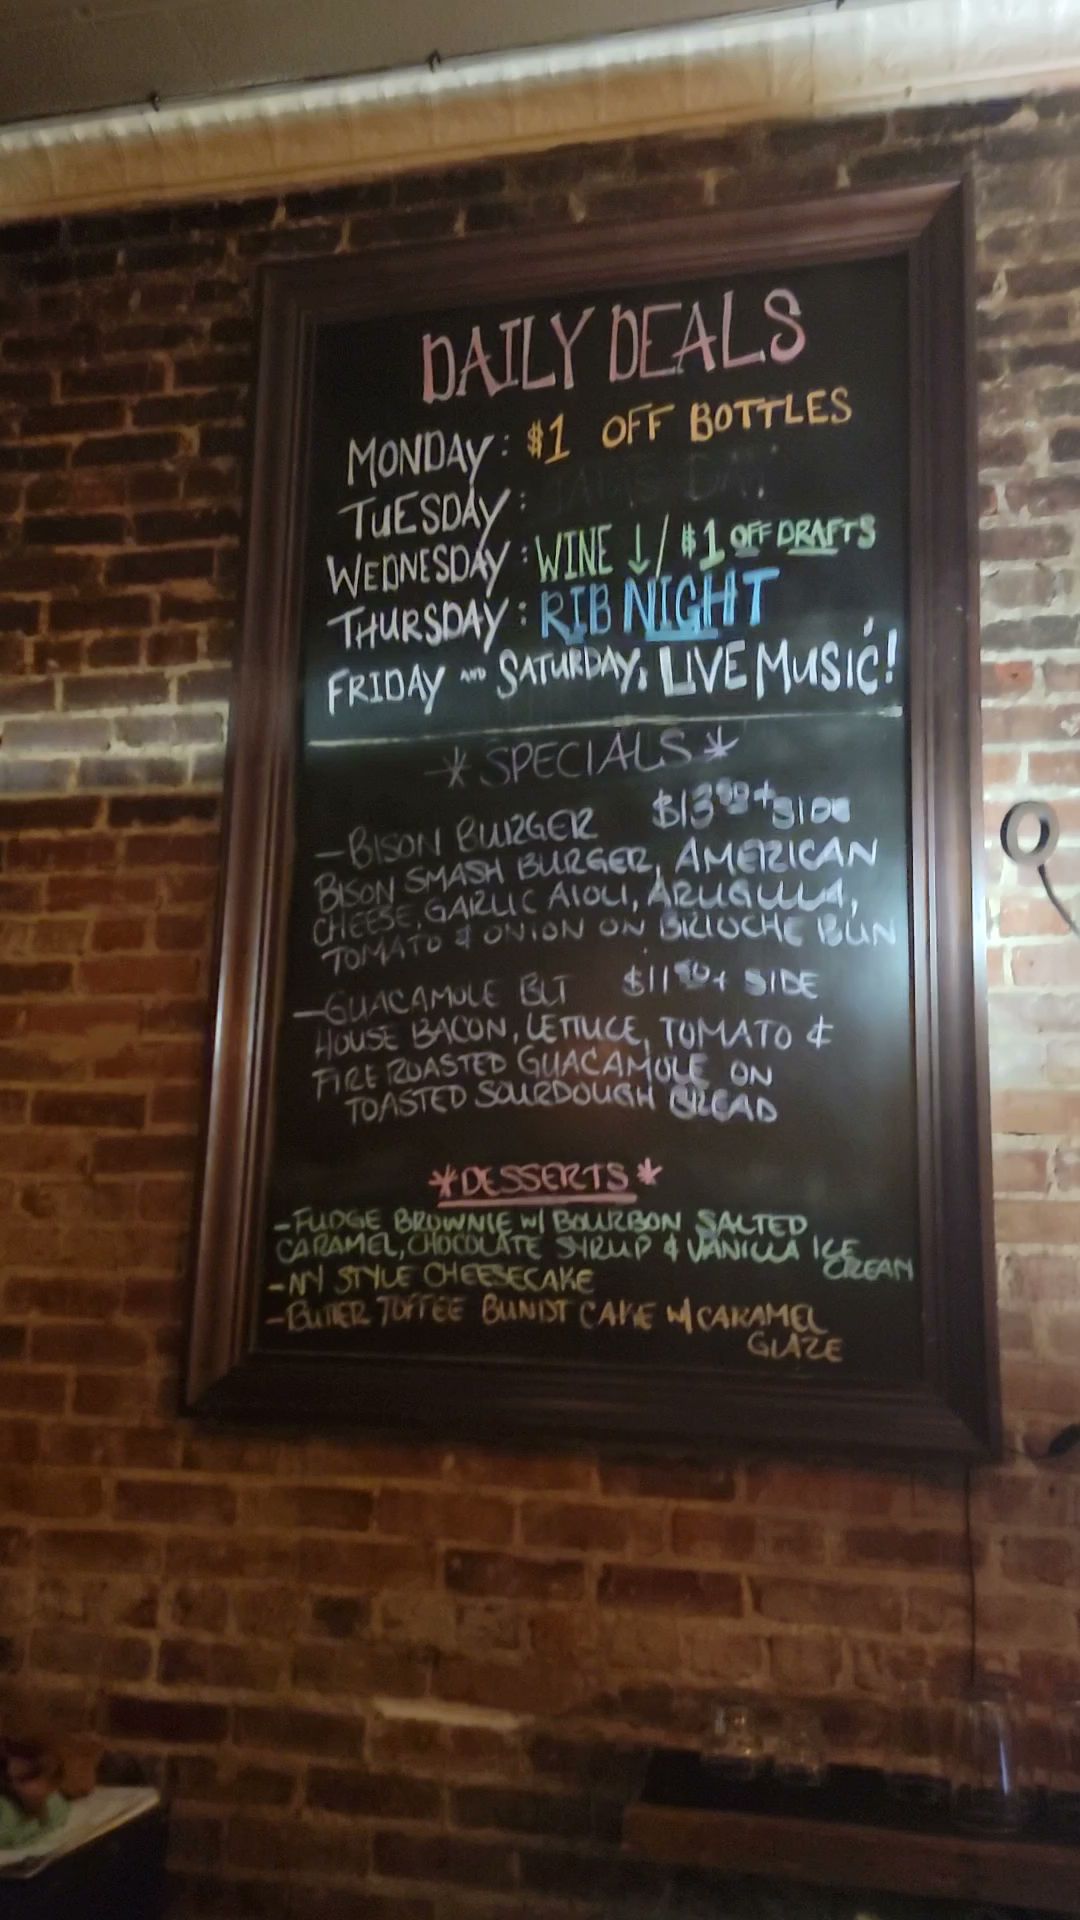 DAILY DEALS
MONDAY: $1 OFF BOTTLES
TUESDAY:
WEDNESDAY: WINE ↓/ $1 OFF DRAFTS
THURSDAY: RIB NIGHT
FRIDAY AND SATURDAY: LIVE MUSIC!
*SPECIALS*
-BISON BURGER + SIDE
BISON SMASH BURGER, AMERICAN
CHEESE, GARLIC AIOLI, ARUGULA,
TOMATO & ONION ON BRIOCHE BUN
-GUACAMOLE BLT $11 50 + SIDE
HOUSE BACON, LETTUCE, TOMATO &
FIRE ROASTED GUACAMOLE ON
TOASTED SOURDOUGH BREAD
*DESSERTS*
-FUDGE BROWNIE W/ BOURBON SALTED
CARAMEL, CHOCOLATE SYRUP & VANILLA ICE
CREAM
-NY STYLE CHEESECAKE
-BUTTER TOFFEE BUNDT CAKE W/ CARAMEL
GLAZE